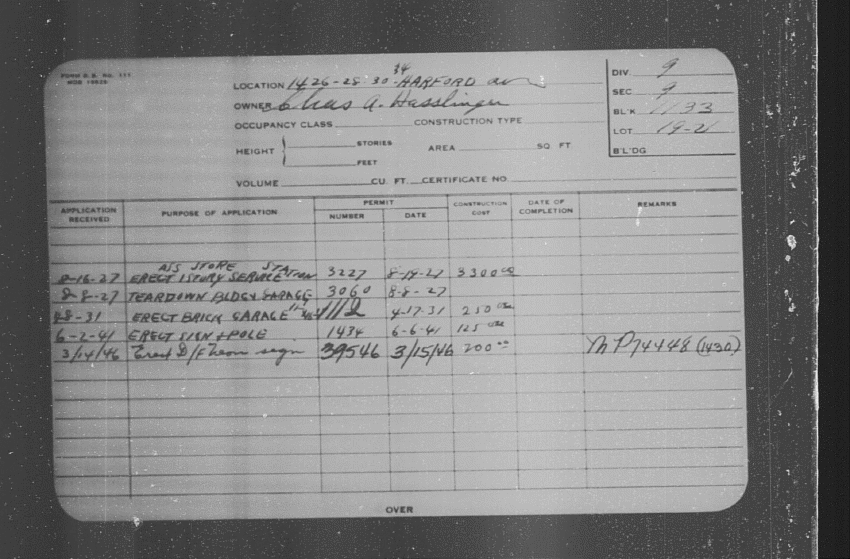 FORM B. B. No. 111
DIV. 9
34
LOCATION 1426-28 30-HARFORD av
SEC 9
OWNER Chas A. Hasslinger
BL'K 1133
OCCUPANCY CLASS CONSTRUCTION TYPE
LOT 19-21
HEIGHT STORIES AREA SQ FT
B'L'DG
FEET
VOLUME CU. FT. CERTIFICATE NO.
APPLICATION RECEIVED PURPOSE OF APPLICATION PERMIT NUMBER DATE CONSTRUCTION COST DATE OF COMPLETION REMARKS
ASS STORE STATION
8-16-27 ERECT 1 STORY SERVICE 3227 8-19-27 3300 00
8-8-27 TEARDOWN BLDGY GARAGE 3060 8-8-27
4-8-31 ERECT BRICK GARAGE 4-17-31 250
6-2-41 ERECT SIGN + POLE 1434 6-6-41 125
3/14/46 Erect D/F neon sign 39546 3/15/46 200 00 MP74448 (1430)
OVER